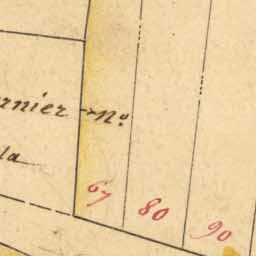 rnier - No.
la
67 80 90